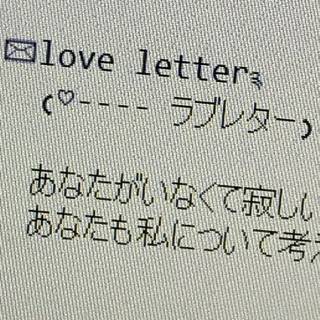 ✉love letter༊
(♡---- ラブレター)
あなたがいなくて寂しい
あなたも私について考え